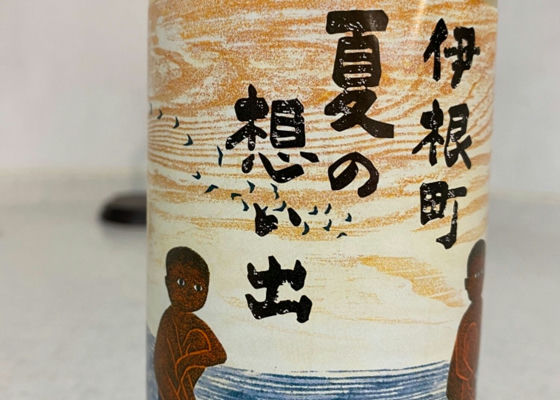 伊根町
夏の
想い出